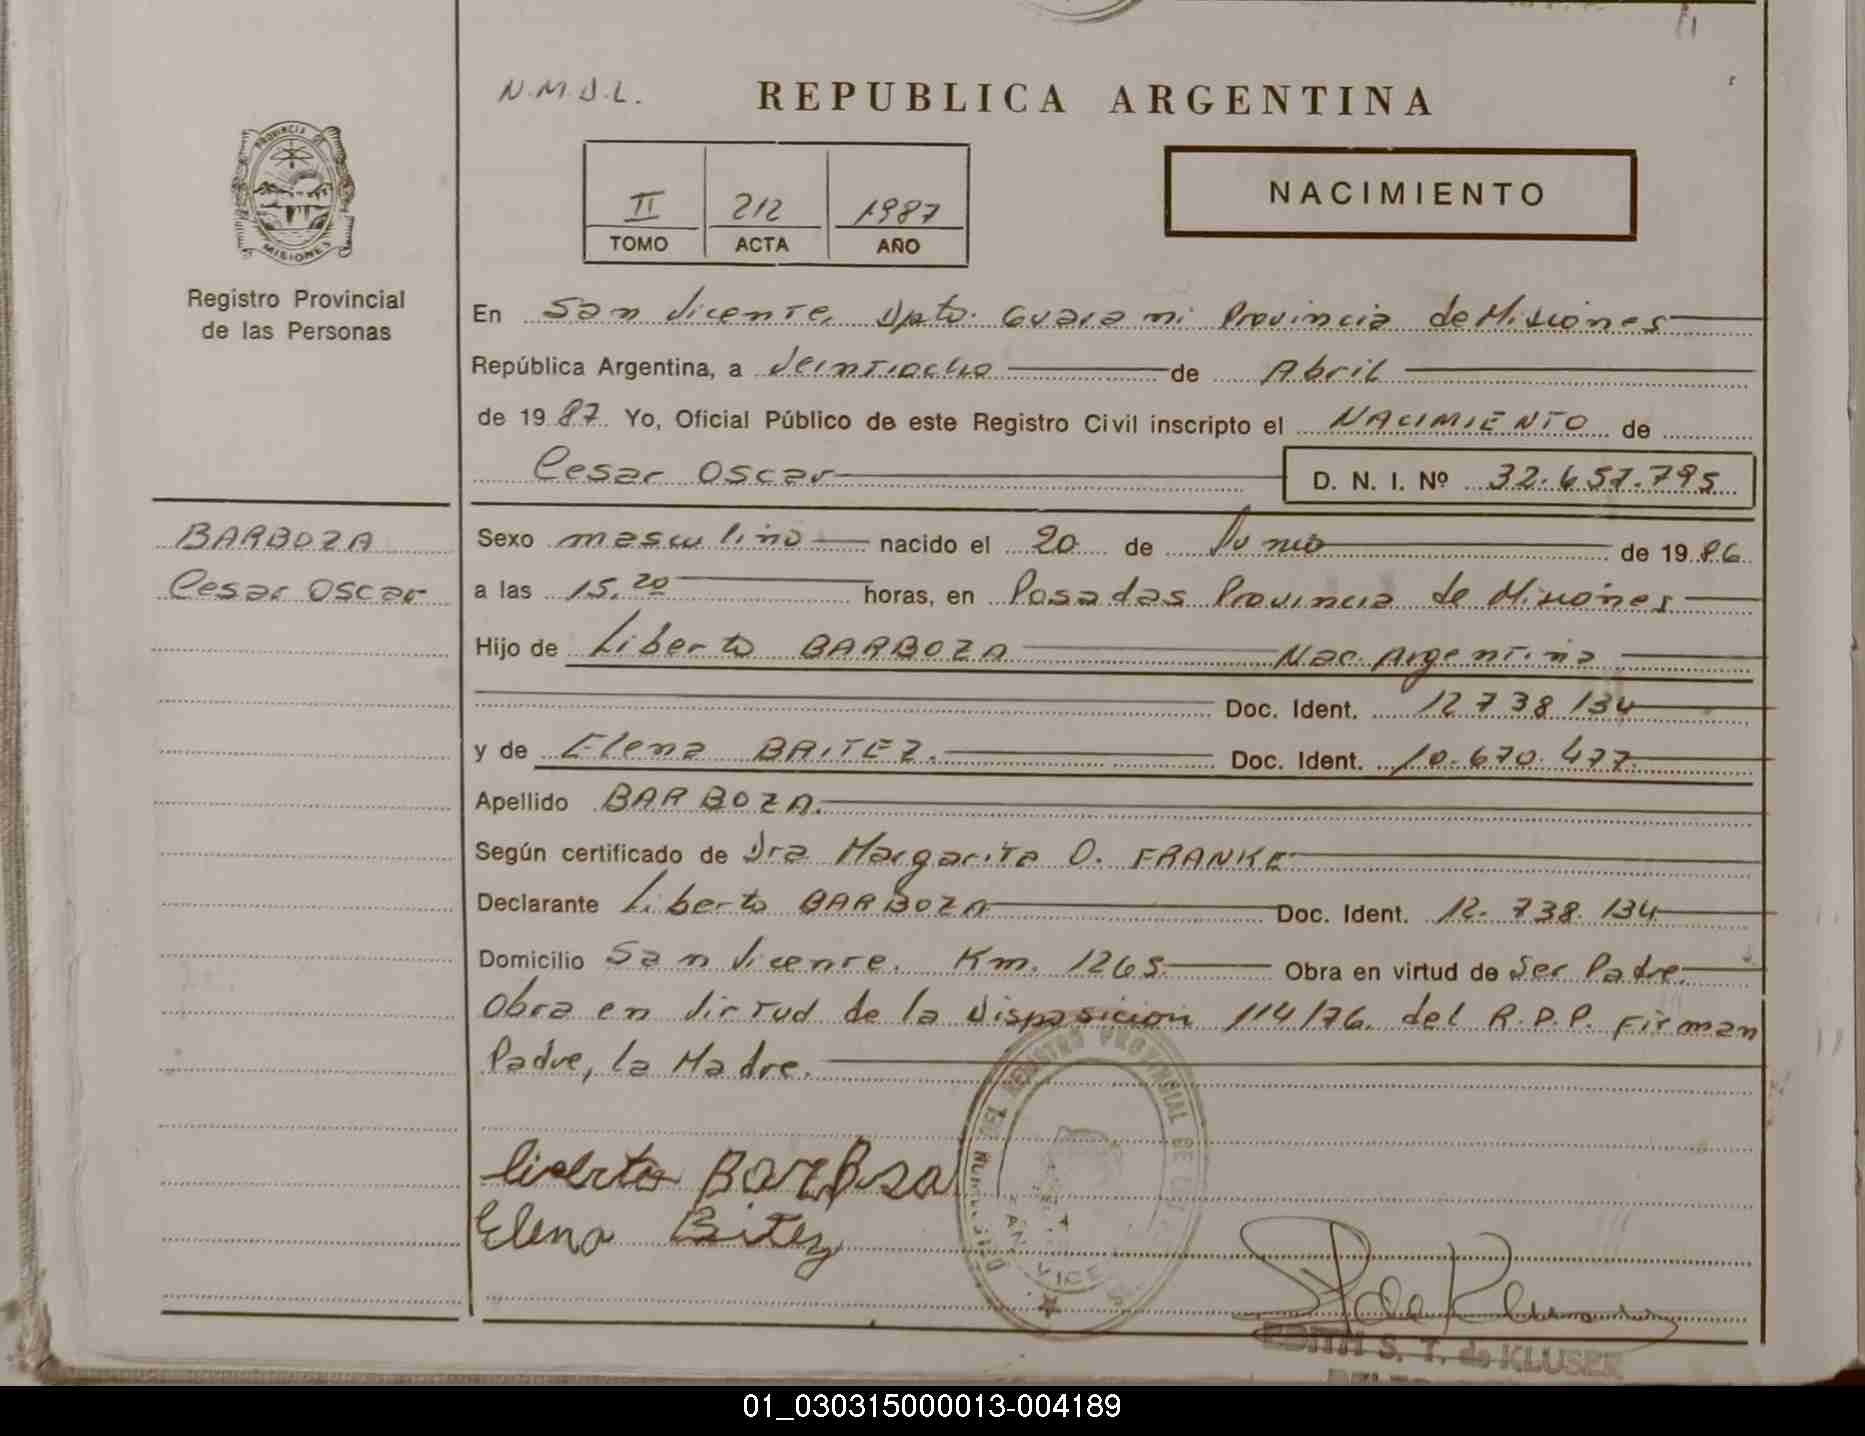 N.M.S.L.
REPUBLICA ARGENTINA
PROVINCIA DE
MISIONES
II 212 1987
TOMO ACTA AÑO
NACIMIENTO
Registro Provincial
de las Personas
En San Vicente, Dpto. Guarani Provincia de Misiones
República Argentina, a Veintiocho de Abril
de 1987 Yo, Oficial Público de este Registro Civil inscripto el NACIMIENTO de
Cesar Oscar D. N. I. Nº 32.657.795
BARBOZA
Cesar Oscar
Sexo masculino nacido el 20 de Junio de 1986
a las 15.20 horas, en Posadas Provincia de Misiones
Hijo de Liberto BARBOZA Nac. Argentina
Doc. Ident. 12 738 134
y de Elena BRITEZ. Doc. Ident. 10.670.477
Apellido BARBOZA.
Según certificado de Dra Margarita O. FRANKE
Declarante Liberto BARBOZA Doc. Ident. 12.738.134
Domicilio San Vicente. Km. 1265 Obra en virtud de Ser Padre.
Obra en Virtud de la Disposicion 114/76. del R.P.P. Firman
Padre, la Madre.
DEL REGISTRO PROVINCIAL DE
Liberto Barboza
Elena Britez
EDITH S. T. de KLUSER
01_030315000013-004189